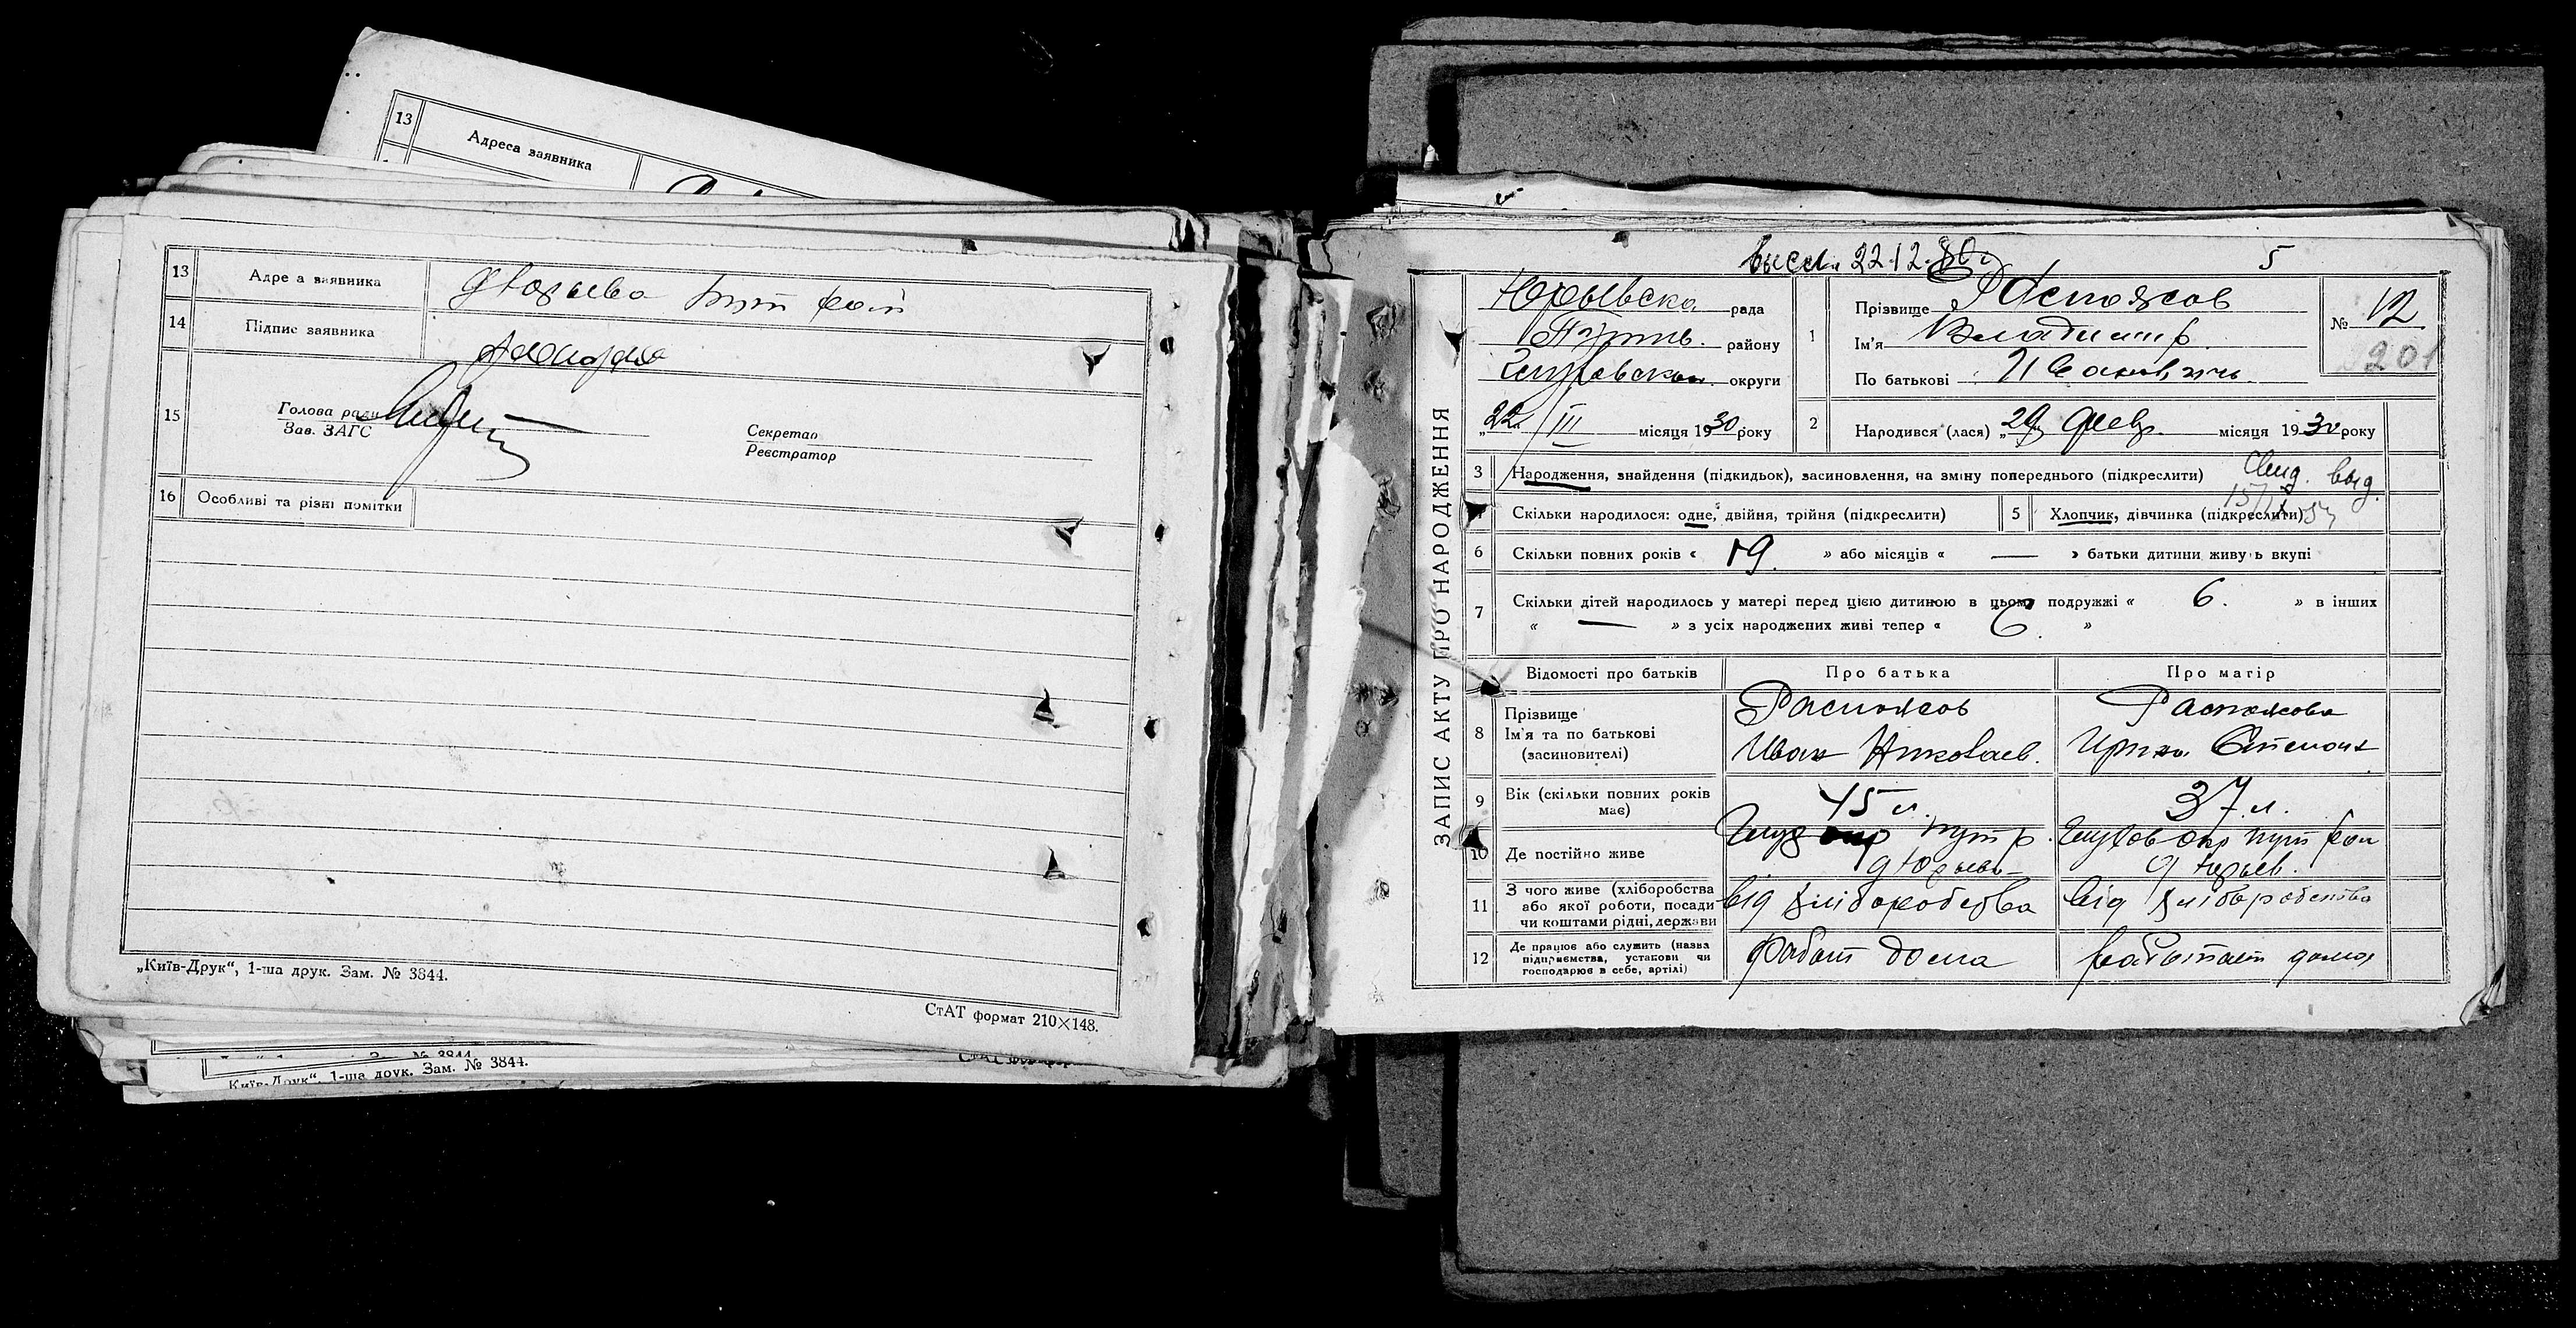 13
Адреса заявника
13
Адре а заявника
д Юрьева Пут рай
14
Підпис заявника
15
Голова ради
Зав. ЗАГС
Секретар
Реєстратор
16
Особливі та різні помітки
„Київ-Друк“, 1-ша друк. Зам. № 3844.
СтАТ формат 210×148.
№ 3844
Київ-Друк“, 1-ша друк. Зам. № 3844.
22.12.80г
5
ЗАПИС АКТУ ПРО НАРОДЖЕННЯ
Юрьевска рада
Путив. району
Глуховской округи
„22“ III місяця 1930 року
1
Прізвище Распоясов
Ім'я Владимир
По батькові Иванович
№ 12
201
2
Народився (лася) „ февр. місяця 1930 року
3
Народження, знайдення (підкидьок), засиновлення, на зміну попереднього (підкреслити)
Свид. выд.
Скільки народилося: одне, двійня, трійня (підкреслити)
5
Хлопчик, дівчинка (підкреслити)
6
Скільки повних років « 19. » або місяців « — » батьки дитини живуть вкупі
7
Скільки дітей народилось у матері перед цією дитиною в цьому подружжі « 6. » в інших
« — » з усіх народжених живі тепер « 6. »
Відомості про батьків
Про батька
Про матір
8
Прізвище
Ім'я та по батькові
(засиновителі)
Распоясов
Иван Николаев.
Распоясова
Ирина Степан
9
Вік (скільки повних років
має)
45 л.
37 л.
10
Де постійно живе
Глух окр Пут р.
д Юрьев
Глухов окр Пут рай
д Юрьев.
11
З чого живе (хліборобства
або якої роботи, посади
чи коштами рідні, держави
від хліборобства
від хліборобства
12
Де працює або служить (назва
підприємства, установи чи
господарює в себе, артілі)
работ дома
работает дома